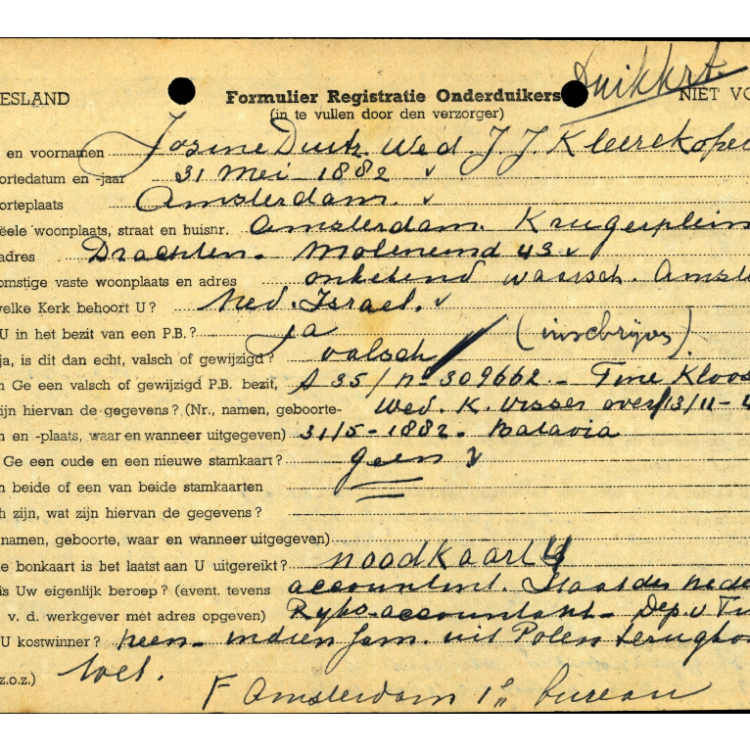 Duikkrt.
ESLAND Formulier Registratie Onderduikers NIET VO
(in te vullen door den verzorger)
en voornamen Josine Duitz. Wed. J. J. Kleerekope
ortedatum en -jaar 31 Mei - 1882 v
orteplaats Amsterdam. v
ëele woonplaats, straat en huisnr. Amsterdam. Krugerplein
adres Drachten - Moleneind 43 v
omstige vaste woonplaats en adres onbekend waarsch. Amste
velke Kerk behoort U? Ned. Israel. v
U in het bezit van een P.B.? ja (inschrijven)
ja, is dit dan echt, valsch of gewijzigd? valsch
n Ge een valsch of gewijzigd P.B. bezit, A 35 / no 309662 - Tine Kloos
ijn hiervan de gegevens? (Nr., namen, geboorte- Wed. K. Visser over/13/11 - 4
n en -plaats, waar en wanneer uitgegeven) 31/5 - 1882 - Batavia
Ge een oude en een nieuwe stamkaart? geen v
n beide of een van beide stamkaarten
h zijn, wat zijn hiervan de gegevens?
namen, geboorte, waar en wanneer uitgegeven)
e bonkaart is het laatst aan U uitgereikt? noodkaart
is Uw eigenlijk beroep? (event. tevens accountant. Staat der nede
v. d. werkgever met adres opgeven) Ryks-accountant - Dep. v
U kostwinner? neen - indien fam. uit Polen terugko
z.o.z.) wel.
F Amsterdam 1e bureau